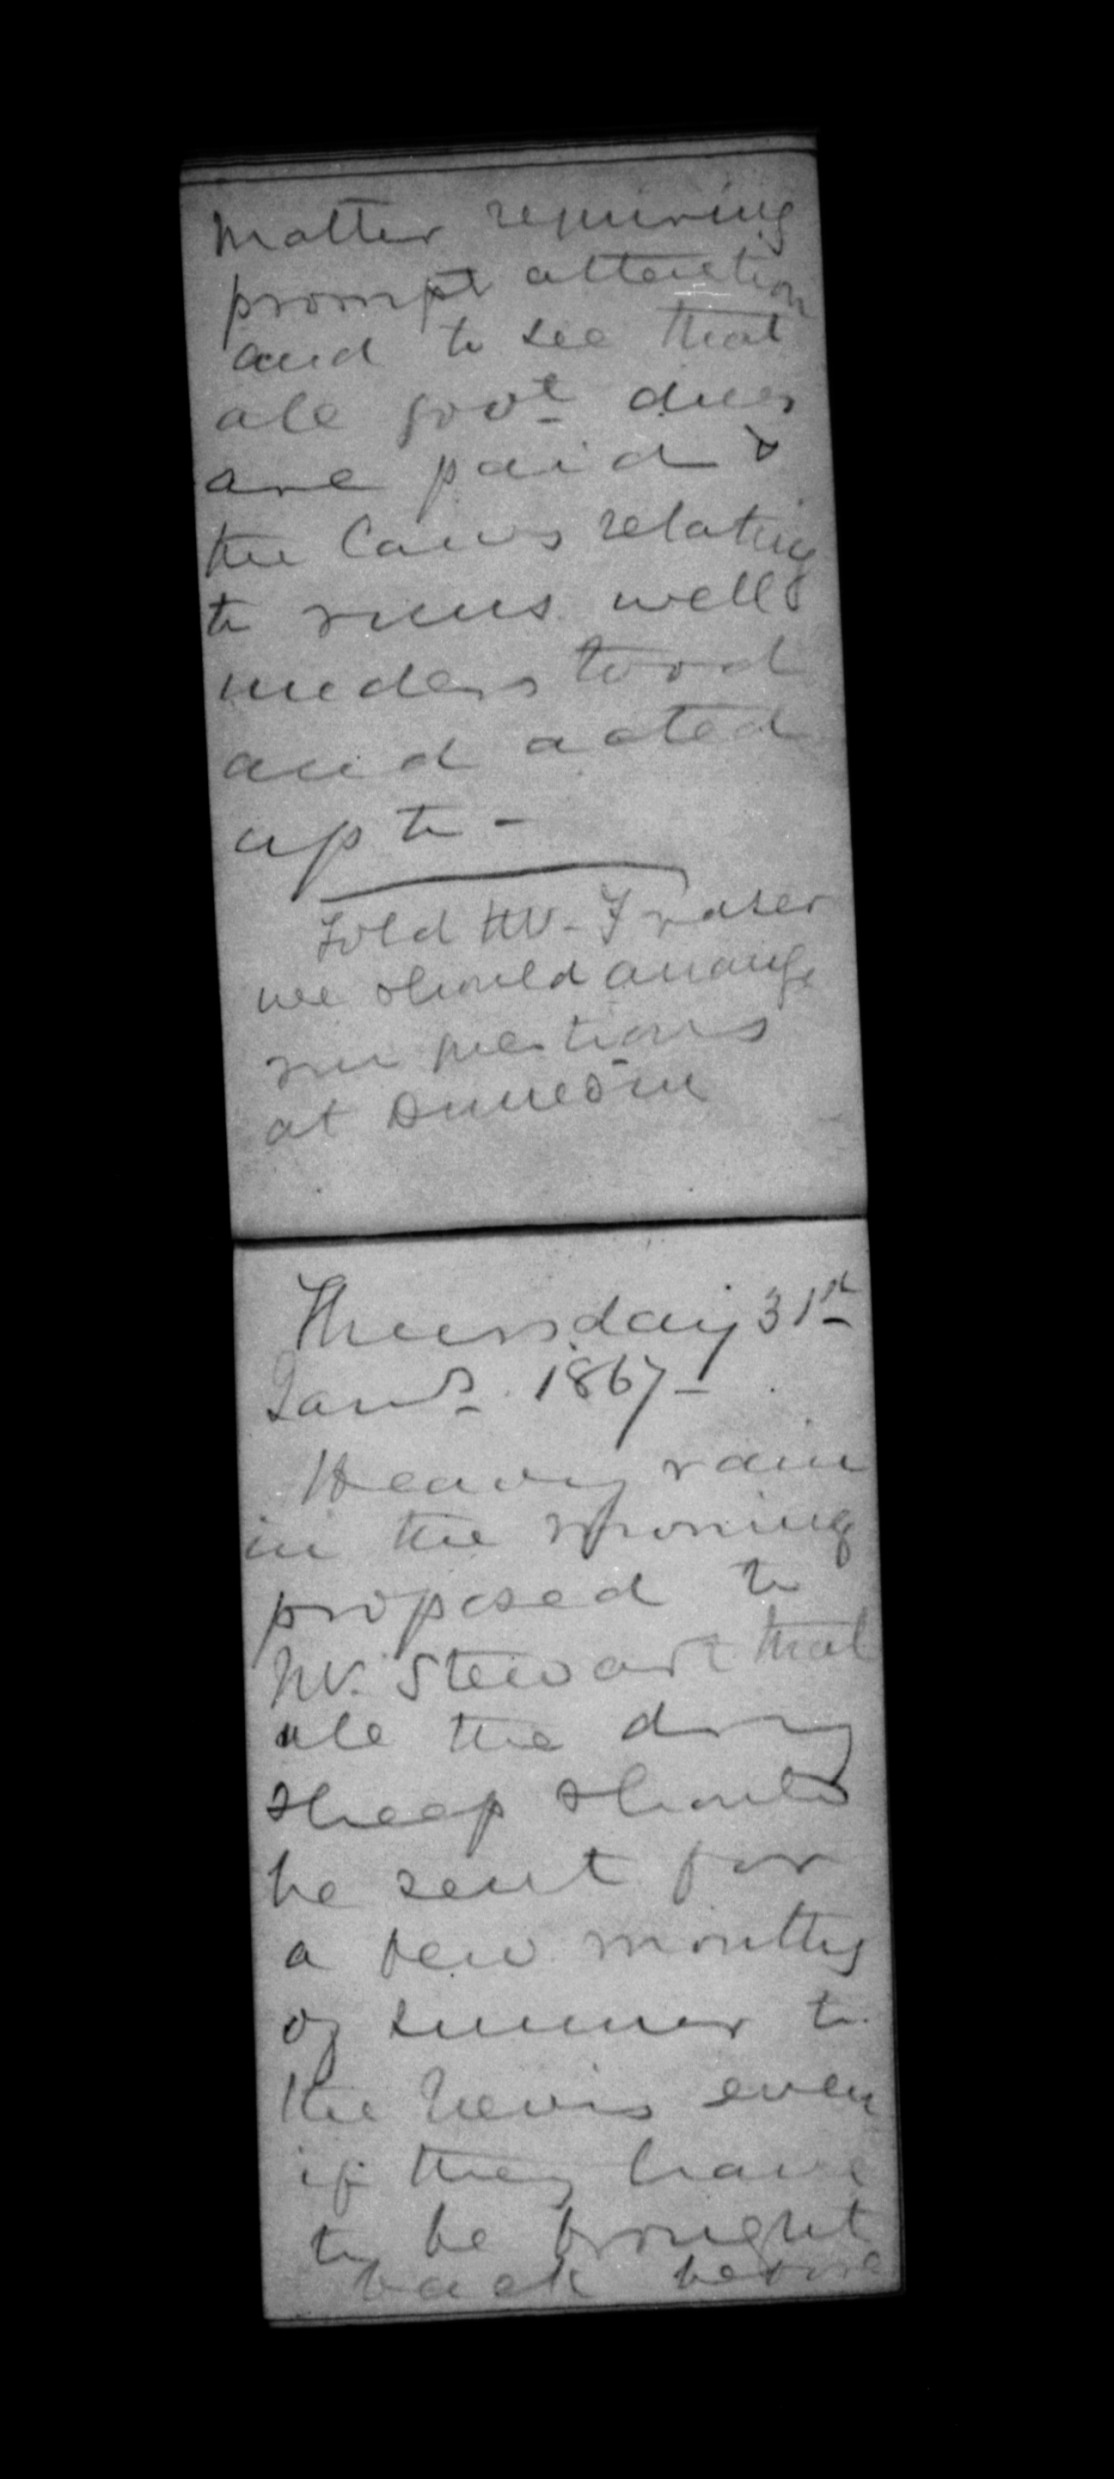 Matter requiring
prompt attention
and to see that
all govt dues
are paid &
the Laws relating
to runs well
understood
and acted
up to -
Told Mr. Fraser
we should arrange
run questions
at Dunedin
Thursday 31st
Jany. 1867 -
Heavy rain
in the morning
proposed to
Mr. Stewart that
all the dry
sheep should
be sent for
a few months
of summer to
the Nevis even
if they have
to be brought
back before